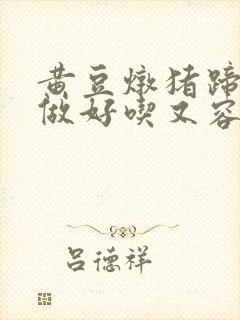 黄豆炖猪蹄
做好喫又容
吕德祥